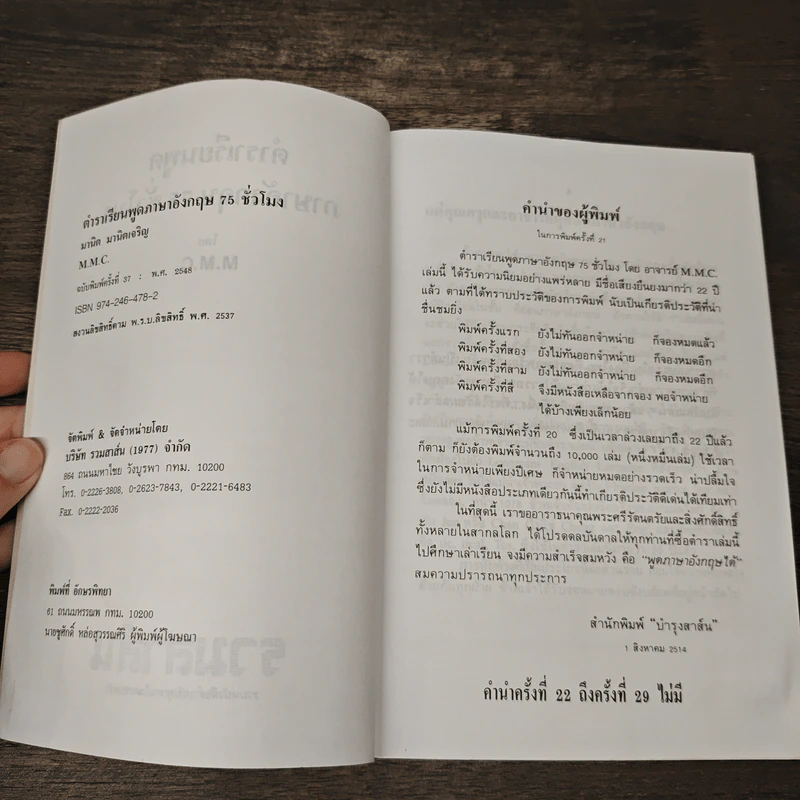 ตำราเรียนพูดภาษาอังกฤษ 75 ชั่วโมง
มานิต มานิตเจริญ
M.M.C.
ฉบับพิมพ์ครั้งที่ 37 : พ.ศ. 2548
ISBN 974-246-478-2
สงวนลิขสิทธิ์ตาม พ.ร.บ.ลิขสิทธิ์ พ.ศ. 2537
จัดพิมพ์ & จัดจำหน่ายโดย
บริษัท รวมสาส์น (1977) จำกัด
864 ถนนมหาไชย วังบูรพา กทม. 10200
โทร. 0-2226-3808, 0-2623-7843, 0-2221-6483
Fax. 0-2222-2036
พิมพ์ที่ อักษรพิทยา
61 ถนนมหรรณพ กทม. 10200
นายชูศักดิ์ หล่อสุวรรณศิริ ผู้พิมพ์ผู้โฆษณา
คำนำของผู้พิมพ์
ในการพิมพ์ครั้งที่ 21
ตำราเรียนพูดภาษาอังกฤษ 75 ชั่วโมง โดย อาจารย์ M.M.C.
เล่มนี้ ได้รับความนิยมอย่างแพร่หลาย มีชื่อเสียงยืนยงมากว่า 22 ปี
แล้ว ตามที่ได้ทราบประวัติของการพิมพ์ นับเป็นเกียรติประวัติที่น่า
ชื่นชมยิ่ง
พิมพ์ครั้งแรก ยังไม่ทันออกจำหน่าย ก็จองหมดแล้ว
พิมพ์ครั้งที่สอง ยังไม่ทันออกจำหน่าย ก็จองหมดอีก
พิมพ์ครั้งที่สาม ยังไม่ทันออกจำหน่าย ก็จองหมดอีก
พิมพ์ครั้งที่สี่ จึงมีหนังสือเหลือจากจอง พอจำหน่าย
ได้บ้างเพียงเล็กน้อย
แม้การพิมพ์ครั้งที่ 20 ซึ่งเป็นเวลาล่วงเลยมาถึง 22 ปีแล้ว
ก็ตาม ก็ยังต้องพิมพ์จำนวนถึง 10,000 เล่ม (หนึ่งหมื่นเล่ม) ใช้เวลา
ในการจำหน่ายเพียงปีเศษ ก็จำหน่ายหมดอย่างรวดเร็ว น่าปลื้มใจ
ซึ่งยังไม่มีหนังสือประเภทเดียวกันนี้ทำเกียรติประวัติดีเด่นได้เทียมเท่า
ในที่สุดนี้ เราขออาราธนาคุณพระศรีรัตนตรัยและสิ่งศักดิ์สิทธิ์
ทั้งหลายในสากลโลก ได้โปรดดลบันดาลให้ทุกท่านที่ซื้อตำราเล่มนี้
ไปศึกษาเล่าเรียน จงมีความสำเร็จสมหวัง คือ "พูดภาษาอังกฤษได้"
สมความปรารถนาทุกประการ
สำนักพิมพ์ "บำรุงสาส์น"
1 สิงหาคม 2514
คำนำครั้งที่ 22 ถึงครั้งที่ 29 ไม่มี